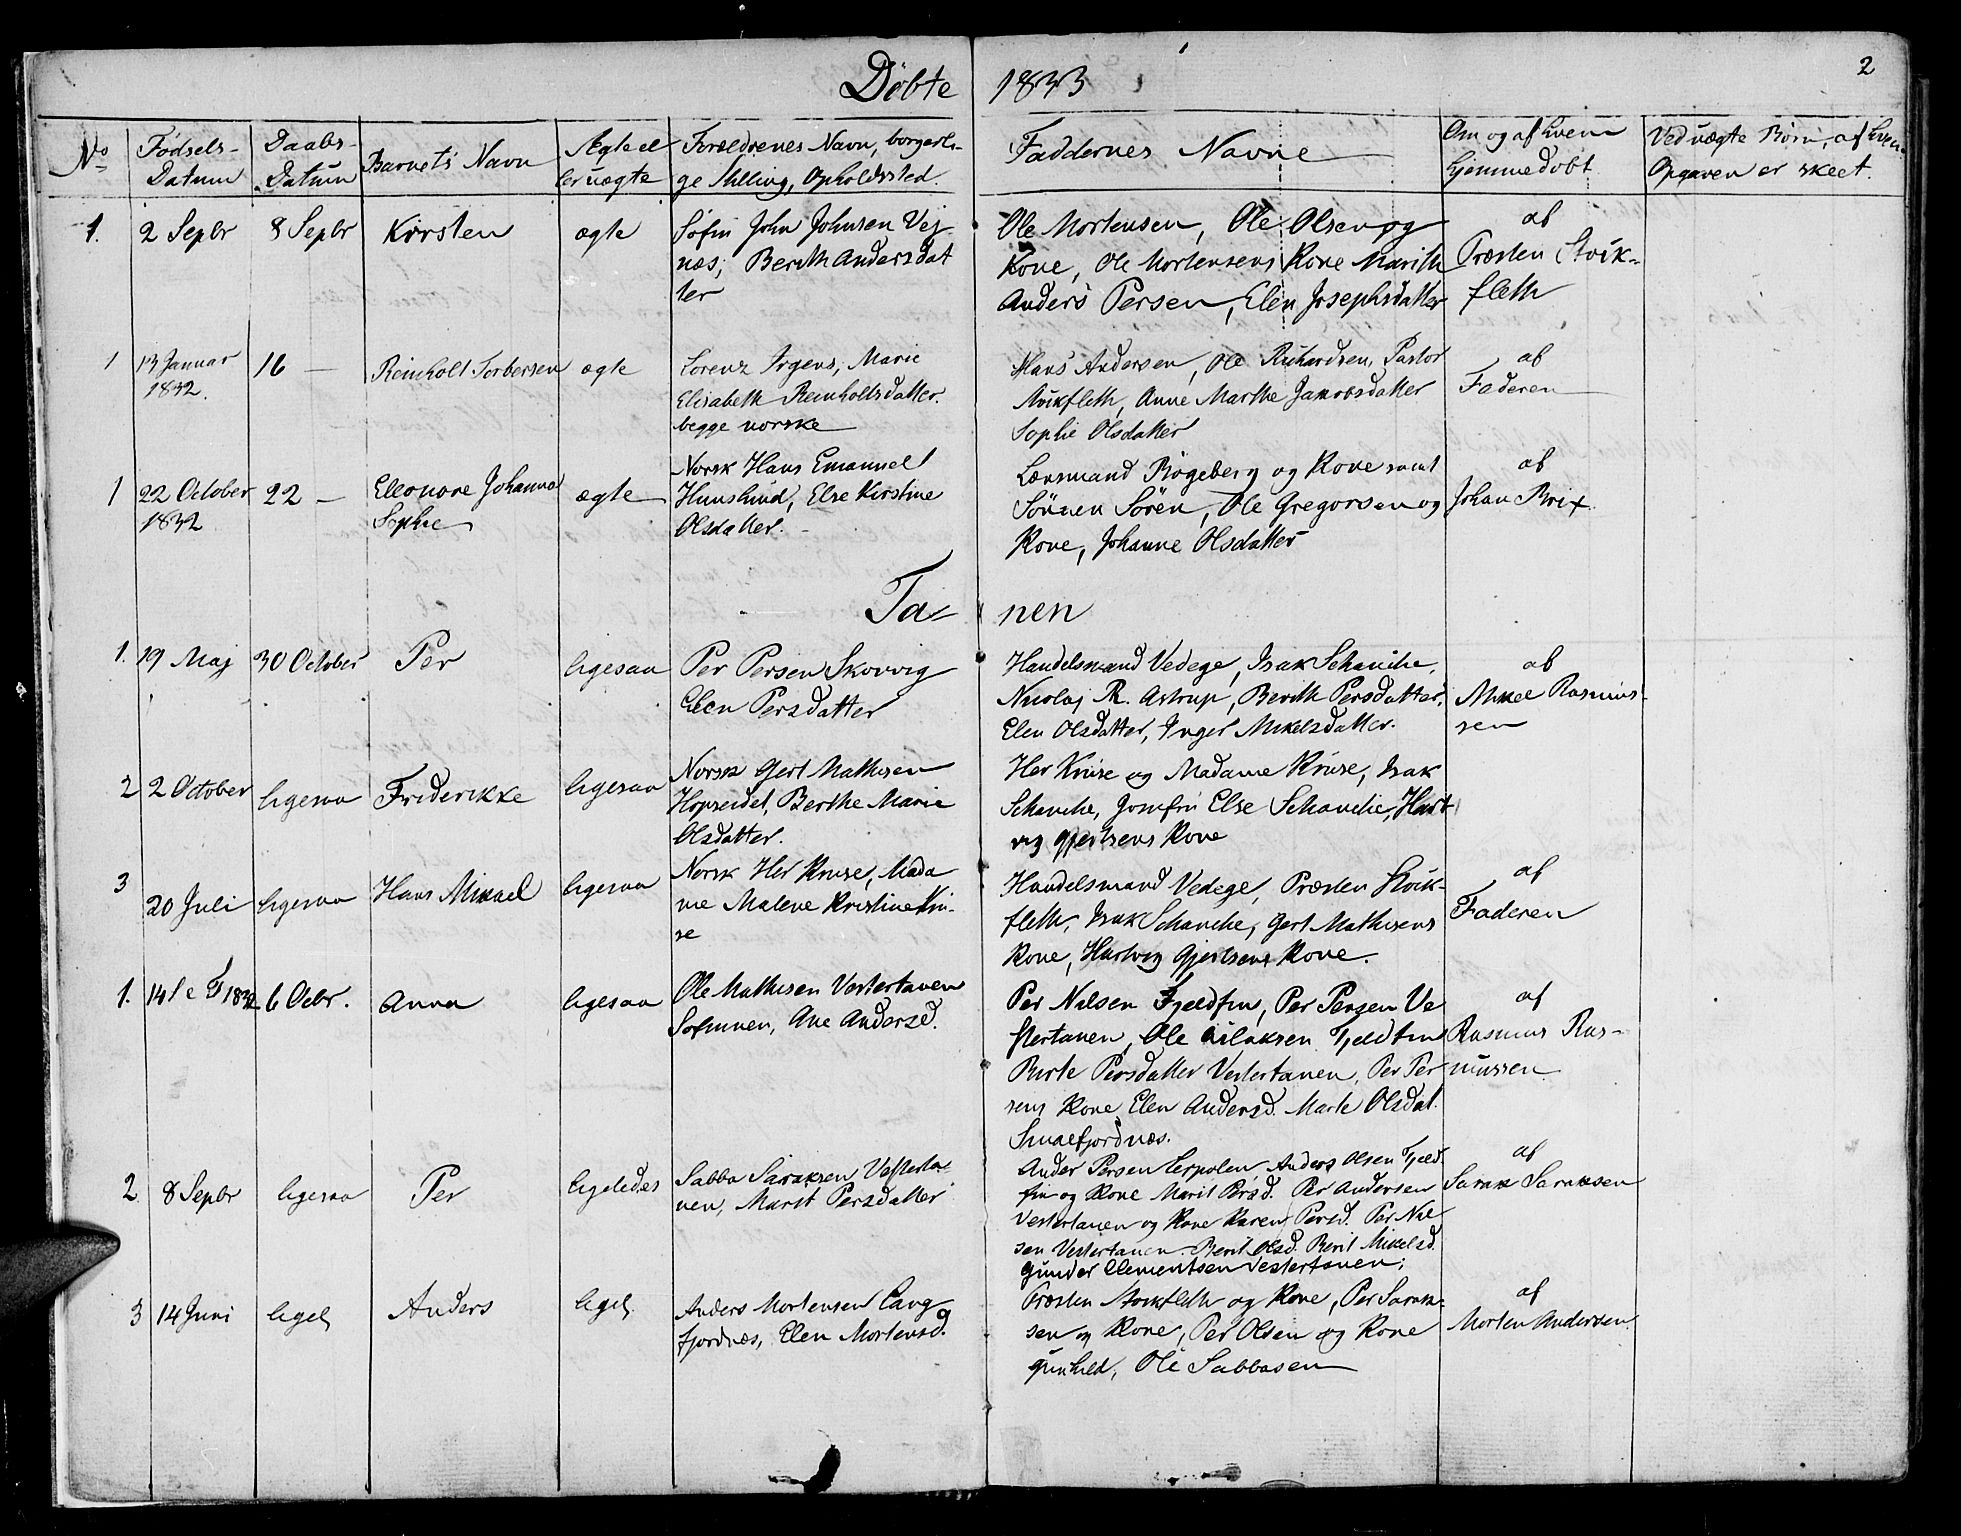 Döbte 1833
2
No
Fødsels-
Datum
Daabs-
Datum
Barnets Navn
Ægte el
ler uægte
Forældrenes Navn, borgerli-
ge Stilling, Opholdssted.
Faddernes Navne
Om og af hvem
hjemmedøbt
Ved uægte Børn, af hvem
Opgaven er skeet.
1.
2 Sepbr
8 Sepbr
Kirsten
ægte
Søfin John Johnsen Vej-
næs, Berith Andersdat
ter
Ole Mortensen, Ole Olsen og
Kone, Ole Mortensens Kone Marith
Anders Persen, Elen Josephsdatter
af
Præsten Stock-
fleth
1
13 Januar
1832.
16 —
Reinholt Torbersen
ægte
Lorenz Irgens, Marie
Elisabeth Reinholtsdatter.
begge norske
Hans Andersen, Ole Richardsen, Pastor
Stockfleth, Anne Marthe Jakobsdatter
Sophie Olsdatter
af
Faderen
1
22 October
1832
22 —
Eleonore Johanna
Sophie
ægte
Norsk Hans Emanuel
Hunslund, Else Kirstine
Olsdatter.
Lænsmand Bögeberg og Kone samt
Sönnen Sören, Ole Gregorsen og
Kone, Johanne Olsdatter
af
Johan Brix.
Ta= nen
1.
19 Maj
30 October
Per
ligesaa
Per Persen Skovvig
Elen Persdatter
Handelsmand Vedege, Isak Schanche,
Nicolaj R. Astrup, Berith Persdatter,
Elen Olsdatter, Inger Mikelsdatter.
af
Mikel Rasmus-
sen
2
2 October
ligesaa
Friderikke
ligesaa
Norsk Gert Mathisen
Hopseidet, Berthe Marie
Olsdatter.
Her Kruse og Madame Kruse, Isak
Schanche, Jomfru Else Schanche, Hart
vig Gjertsens Kone
3
20 Juli
ligesaa
Hans Mikael
ligesaa
Norsk Her Kruse, Mada
me Malene Kristine Kru-
se
Handelsmand Vedege, Præsten Stock-
fleth, Isak Schanche, Gert Mathisens
Kone, Hartvig Gjertsens Kone.
af
Faderen
1.
1832
6 Octbr.
Anna
ligesaa
Ole Mathisen Vestertanen
Sofinnen, Ane Andersd.
Per Nilsen Fjeldfin, Per Persen Ve
stertanen, Ole Fjeldfin
Birte Persdatter Vestertanen, Per Per
sens Kone Elen Andersd. Marte Olsdat.
Smalfjordnæs.
af
Rasmus Ras-
mussen
2
8 Sepbr
ligesaa
Per
ligeledes
Sabba Saraksen Vesterta-
nen, Marit Persdatter
Ander Persen Lerpolen, Anders Olsen Fjeld
fin og Kone Marit Persd. Per Andersen
Vestertanen og Kone Karen Persd. Per Nil
sen Vestertanen. Berit Olsd. Berit Mikelsd.
Gunder Clementsen Vestertanen;
af
Sarak Saraksen
3
14 Juni
ligel.
Anders
ligel.
Anders Mortensen Lang
fjordnæs, Elen Mortensd.
Præsten Stockfleth og Kone, Per Sarak-
sen og Kone, Per Olsen og Kone
Gunhild, Ole Sabbasen
af
Morten Andersen.